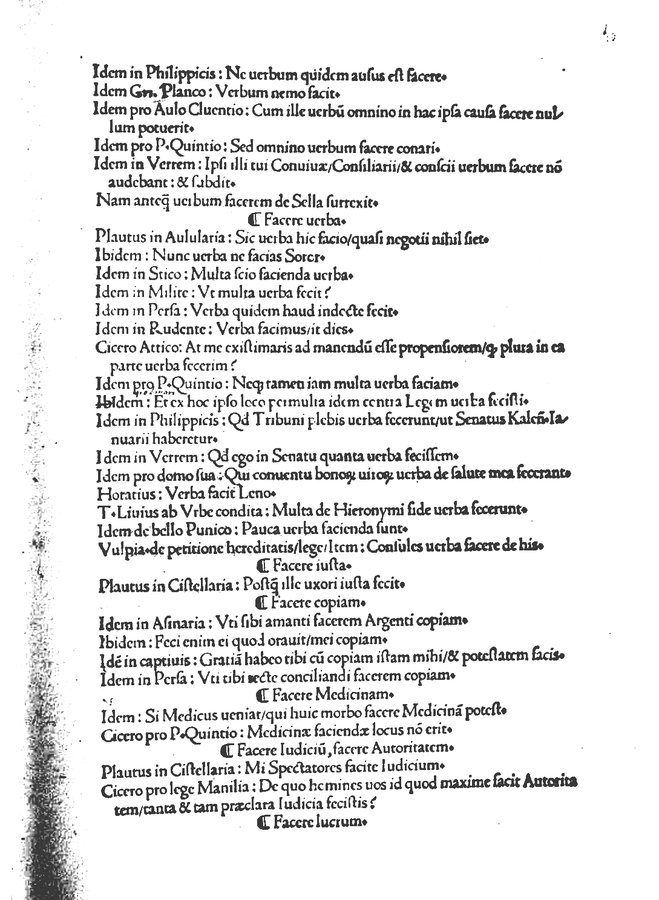 Idem in Philippicis : Ne uerbum quidem ausus est facere.
Idem Gn. Planco : Verbum nemo facit.
Idem pro Aulo Cluentio : Cum ille uerbū omnino in hac ipsa causa facere nul
lum potuerit.
Idem pro P.Quintio : Sed omnino uerbum facere conari.
Idem in Verrem : Ipsi illi tui Conuiuæ/Consiliarii/& conscii uerbum facere nō
audebant : & subdit.
Nam anteq̄ uerbum facerem de Sella surrexit.
¶ Facere uerba.
Plautus in Aulularia : Sic uerba hic facio/quasi negotii nihil siet.
Ibidem : Nunc uerba ne facias Soror.
Idem in Stico : Multa scio facienda uerba.
Idem in Milite : Vt multa uerba fecit ?
Idem in Persa : Verba quidem haud indecte fecit.
Idem in Rudente : Verba facimus/it dies.
Cicero Attico: At me existimaris ad manendū esse propensiorem/q plura in ea
parte uerba fecerim ?
Idem pro P.Quintio : Neq tamen iam multa uerba faciam.
Ibidem : Et ex hoc ipso loco permulta idem contra Legem uerba fecisti.
Idem in Philippicis : Qd Tribuni plebis uerba fecerunt/ut Senatus Kaleñ.Ia
nuarii haberetur.
Idem in Verrem : Qd ego in Senatu quanta uerba fecissem.
Idem pro domo sua : Qui conuentu bonoꝝ uiroꝝ uerba de salute mea fecerant.
Horatius : Verba facit Leno.
T.Liuius ab Vrbe condita : Multa de Hieronymi fide uerba fecerunt.
Idem de bello Punico : Pauca uerba facienda sunt.
Vulpia.de petitione hereditatis/lege/Item : Consules uerba facere de his.
¶ Facere iusta.
Plautus in Cistellaria : Postq̄ ille uxori iusta fecit.
¶ Facere copiam.
Idem in Asinaria : Vti sibi amanti facerem Argenti copiam.
Ibidem : Feci enim ei quod orauit/mei copiam.
Idē in captiuis : Gratiā habeo tibi cū copiam istam mihi/& potestatem facis.
Idem in Persa : Vti tibi recte conciliandi facerem copiam.
¶ Facere Medicinam.
Idem : Si Medicus ueniat/qui huic morbo facere Medicinā potest.
Cicero pro P.Quintio : Medicinæ faciendæ locus nō erit.
¶ Facere Iudiciū, facere Autoritatem.
Plautus in Cistellaria : Mi Spectatores facite Iudicium.
Cicero pro lege Manilia : De quo homines uos id quod maxime facit Autorita
tem/tanta & tam præclara Iudicia fecistis ?
¶ Facere lucrum.